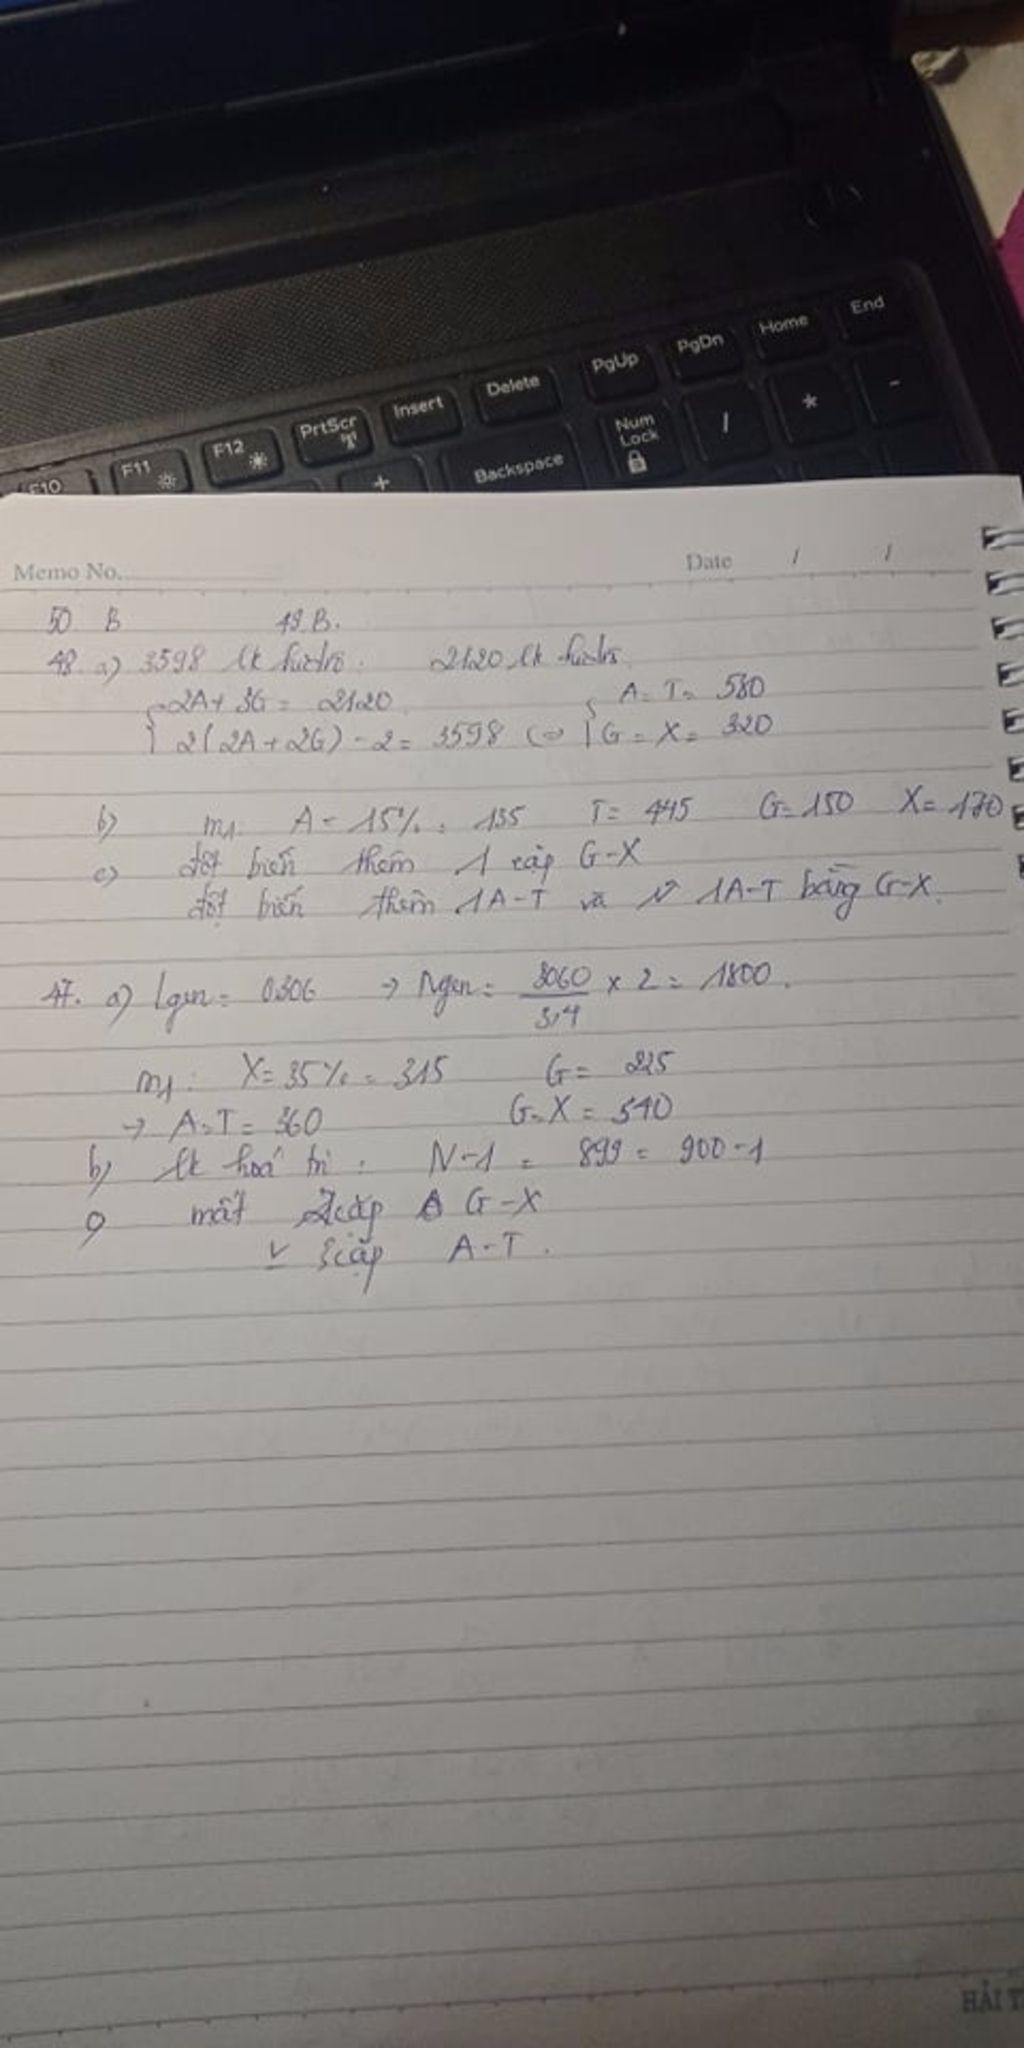 End
Home
PgDn
PgUp
Delete
Insert
PrtScr
F12
F11
F10
Num Lock
/
*
-
Backspace
+
Memo No. Date / /
50 B 49 B.
48. a) 3598 lk hiđrô. 2120 lk hiđrô.
2A + 3G = 2120 A = T = 580
2(2A + 2G) - 2 = 3598 <=> G = X = 320
b) m1: A = 15% = 135 T = 445 G = 150 X = 170
c) đột biến thêm 1 cặp G-X
đột biến thêm 1A-T và 1A-T bằng G-X.
47. a) Lgen = 0306 → Ngen = 3060/3,4 x 2 = 1800.
m1: X = 35% = 315 G = 225
→ A=T = 360 G=X = 540
b) lk hoá trị: N-1 = 899 = 900-1
c) mất cặp G-X
3 cặp A-T.
HẢI T